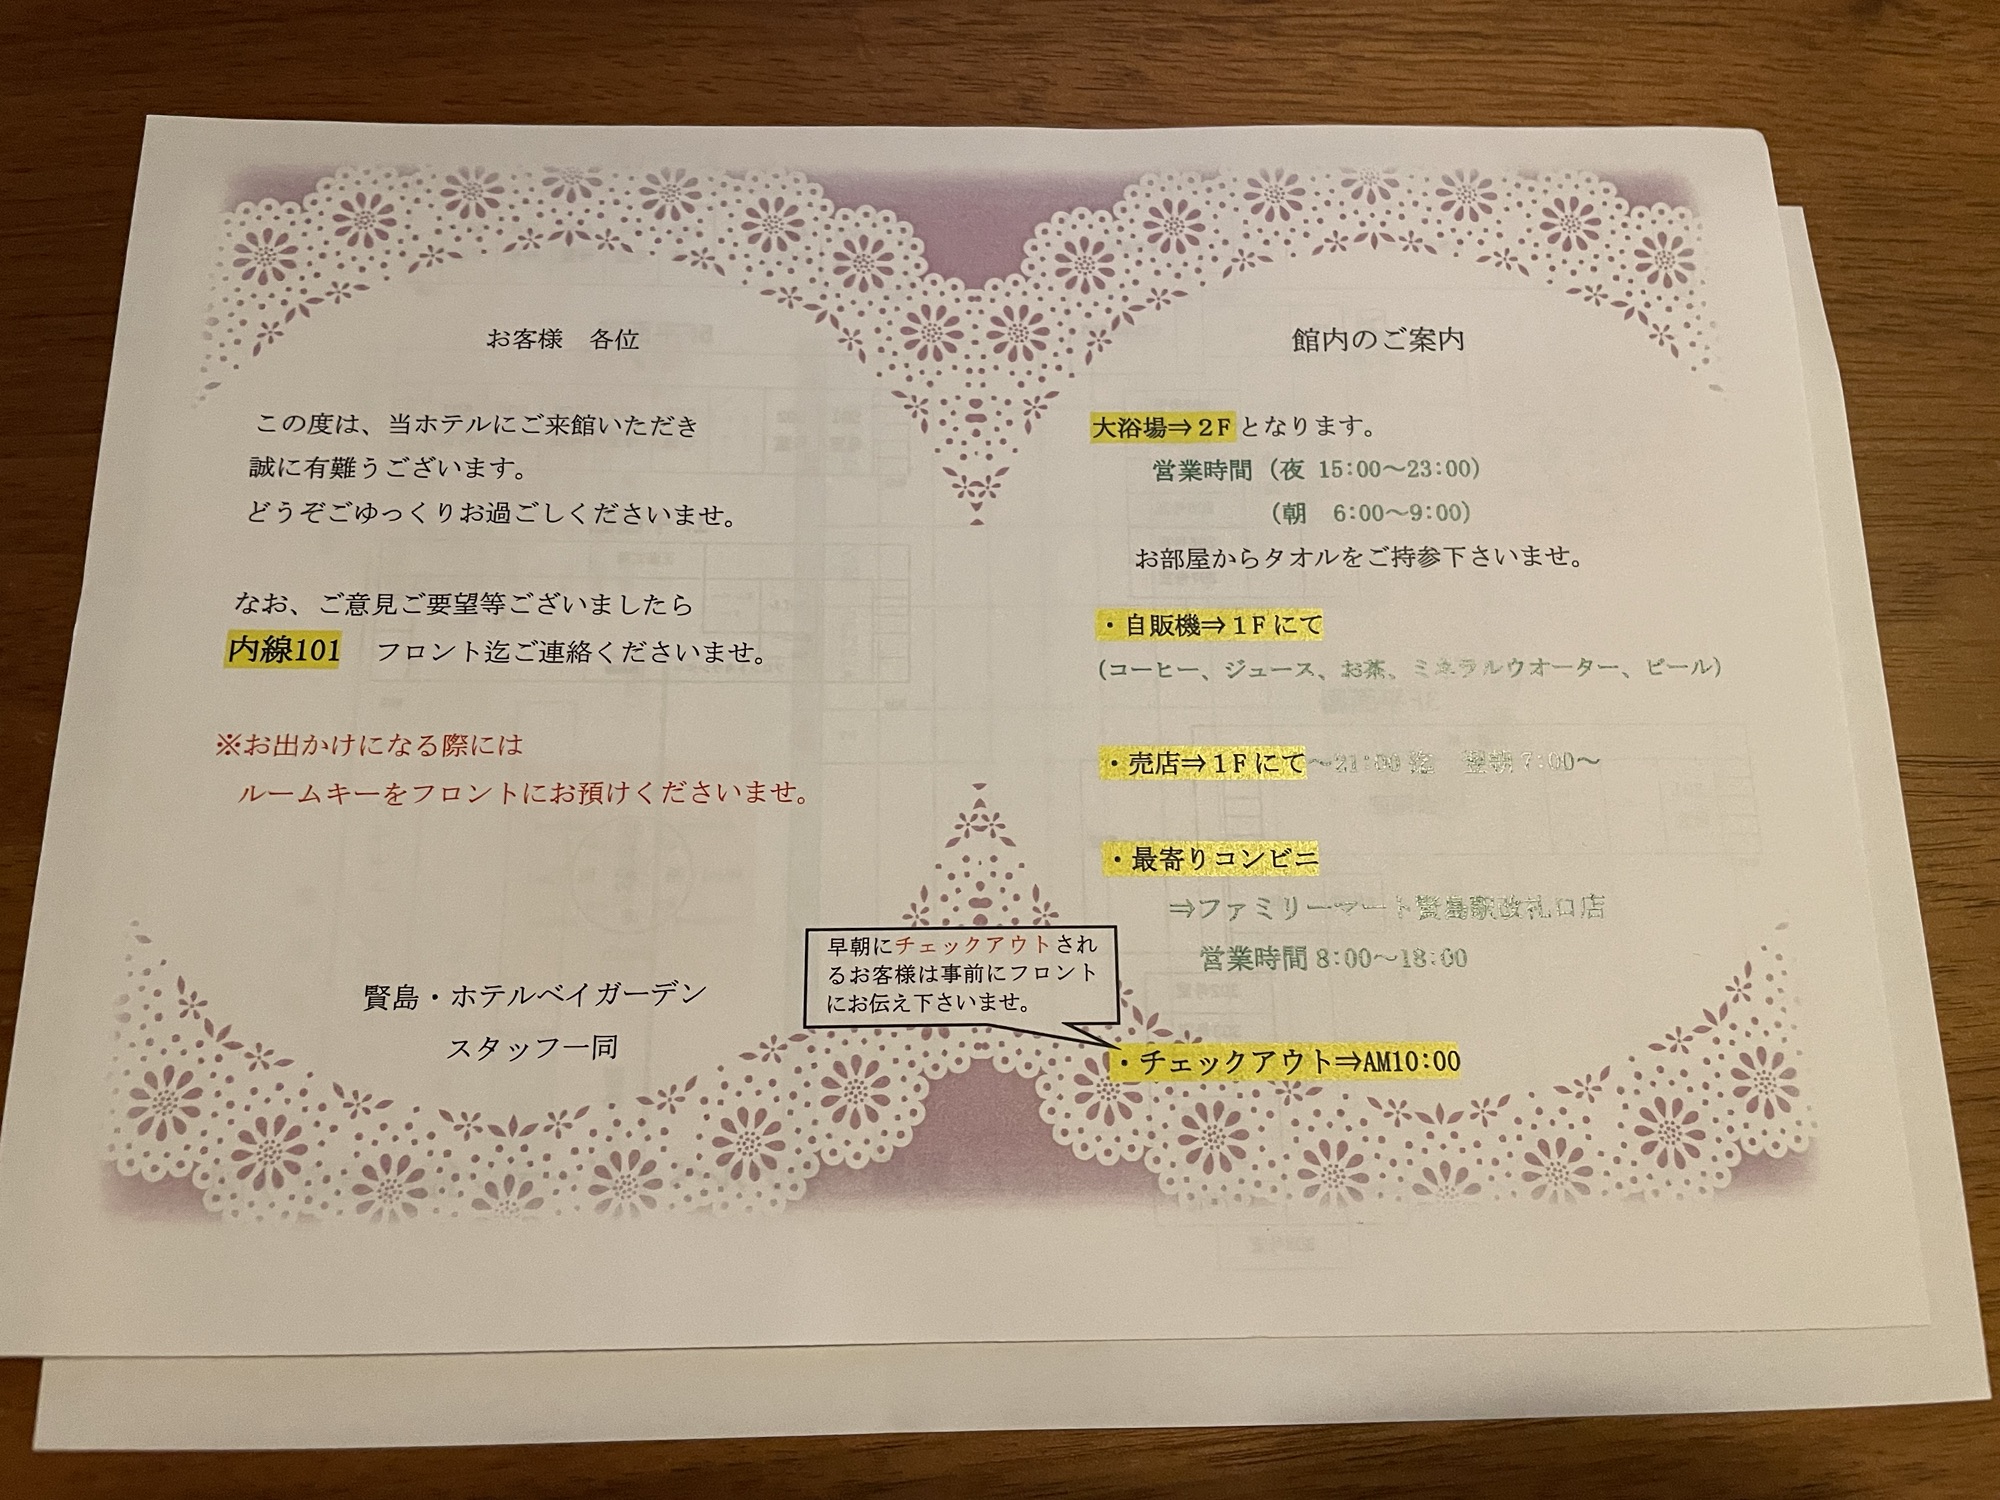 お客様　各位
この度は、当ホテルにご来館いただき
誠に有難うございます。
どうぞごゆっくりお過ごしくださいませ。
なお、ご意見ご要望等ございましたら
内線101　フロント迄ご連絡くださいませ。
※お出かけになる際には
ルームキーをフロントにお預けくださいませ。
賢島・ホテルベイガーデン
スタッフ一同
館内のご案内
大浴場⇒２Fとなります。
営業時間（夜 15:00～23:00）
（朝　6:00～9:00）
お部屋からタオルをご持参下さいませ。
・自販機⇒１Fにて
(コーヒー、ジュース、お茶、ミネラルウオーター、ビール)
・売店⇒１Fにて～21:00迄　翌朝7:00～
・最寄りコンビニ
⇒ファミリーマート賢島駅改札口店
営業時間 8:00～18:00
早朝にチェックアウトされ
るお客様は事前にフロント
にお伝え下さいませ。
・チェックアウト⇒AM10:00